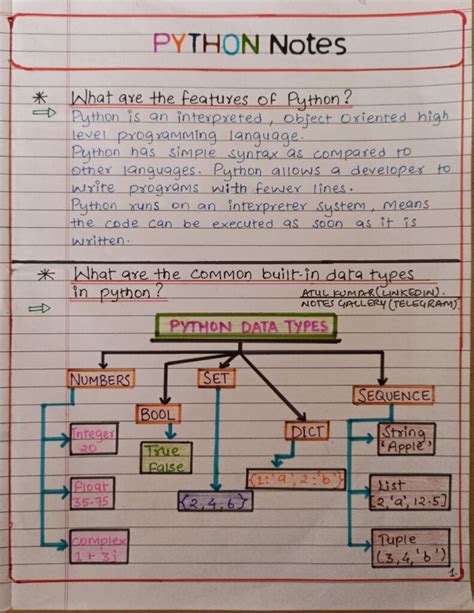 PYTHON Notes
* What are the features of Python?
⇒ Python is an interpreted, Object Oriented high
level programming language.
Python has simple syntax as compared to
other languages. Python allows a developer to
write programs with fewer lines.
Python runs on an interpreter system, means
the code can be executed as soon as it is
written.
* What are the common built-in data types
in python?
ATUL KUMAR (LINKEDIN).
⇒ NOTES GALLERY (TELEGRAM).
PYTHON DATA TYPES
NUMBERS
SET
SEQUENCE
BOOL
DICT
Integer
20
True
False
String
'Apple'
Float
35.75
{2,4,6}
{1:'a', 2:'b'}
List
[2,'a',12.5]
Complex
1 + 3j
Tuple
(3,4,'b')
1.